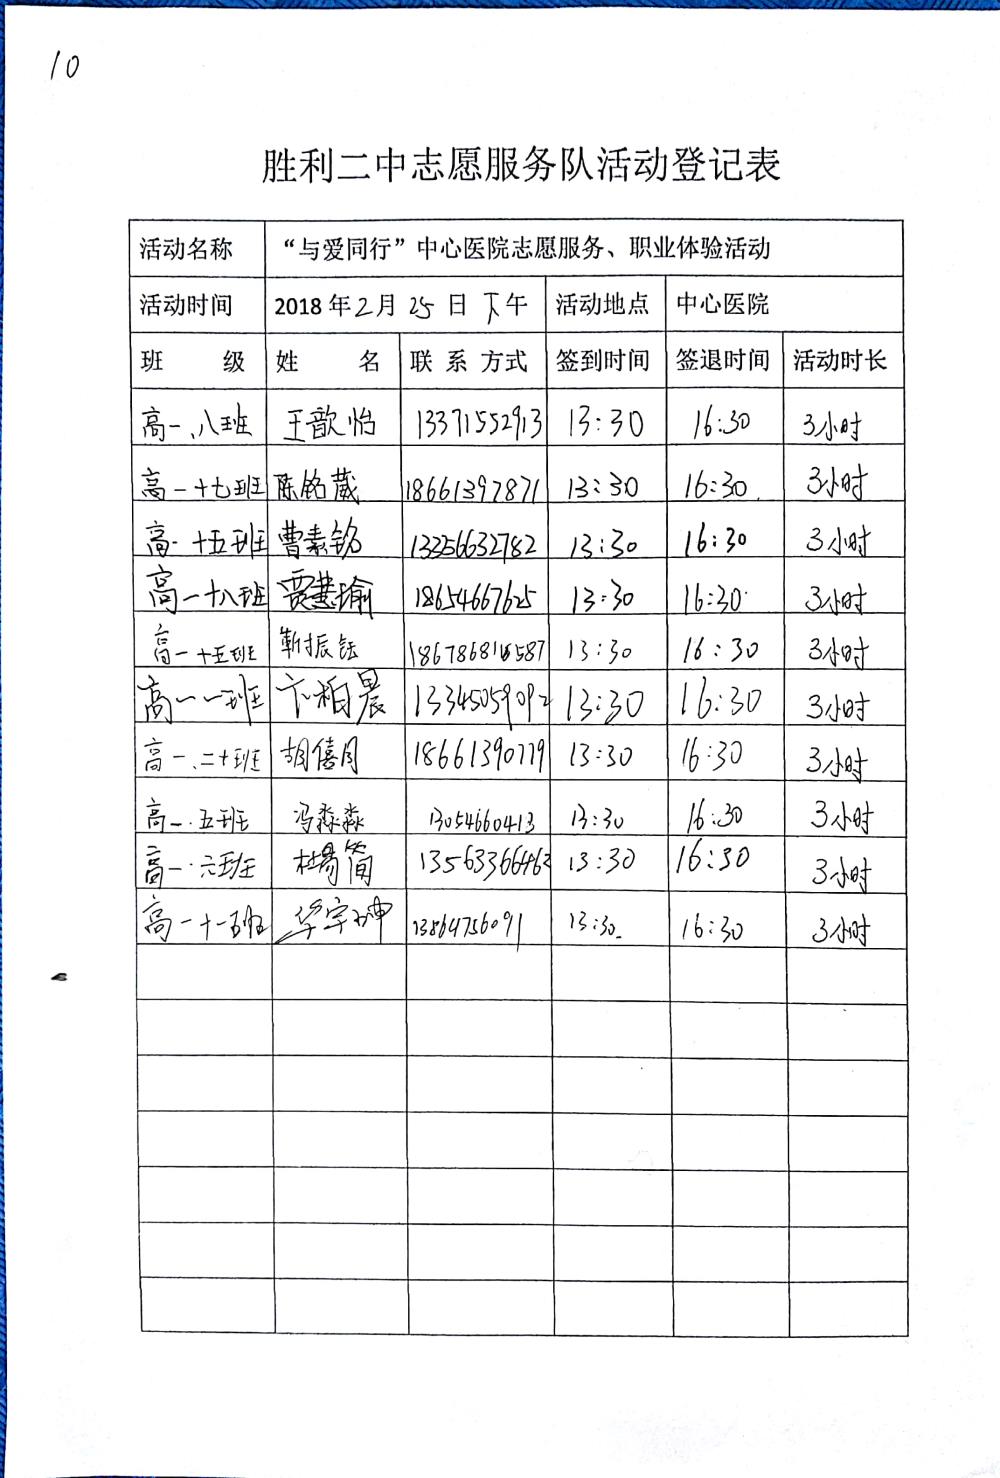 10
胜利二中志愿服务队活动登记表
活动名称 “与爱同行”中心医院志愿服务、职业体验活动
活动时间 2018年2月25日下午 活动地点 中心医院
班 级 姓 名 联系方式 签到时间 签退时间 活动时长
高一、八班 王歆怡 13371552913 13:30 16:30 3小时
高一十七班 陈铭葳 18661397871 13:30 16:30 3小时
高一十五班 曹素铭 13356632782 13:30 16:30 3小时
高一十八班 贾慧瑜 18654667625 13:30 16:30 3小时
高一十五班 靳振钰 13:30 16:30 3小时
高一一班 卞柏晨 13345059092 13:30 16:30 3小时
高一、二十班 胡僖月 18661390779 13:30 16:30 3小时
高一.五班 冯淼淼 13054660413 13:30 16:30 3小时
高一.六班 杜易简 13563366462 13:30 16:30 3小时
高一十一班 华宇坤 13864756091 13:30 16:30 3小时